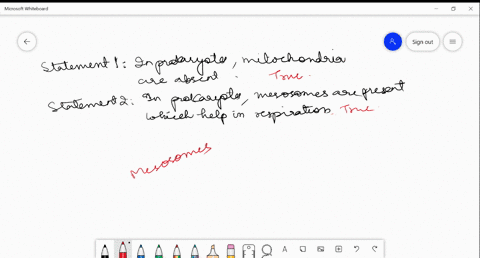 Microsoft Whiteboard
Sign out
Statement 1: In prokaryote, mitochondria
are absent. True.
Statement 2: In prokaryote, mesosomes are present
which help in respiration. True
Mesosomes